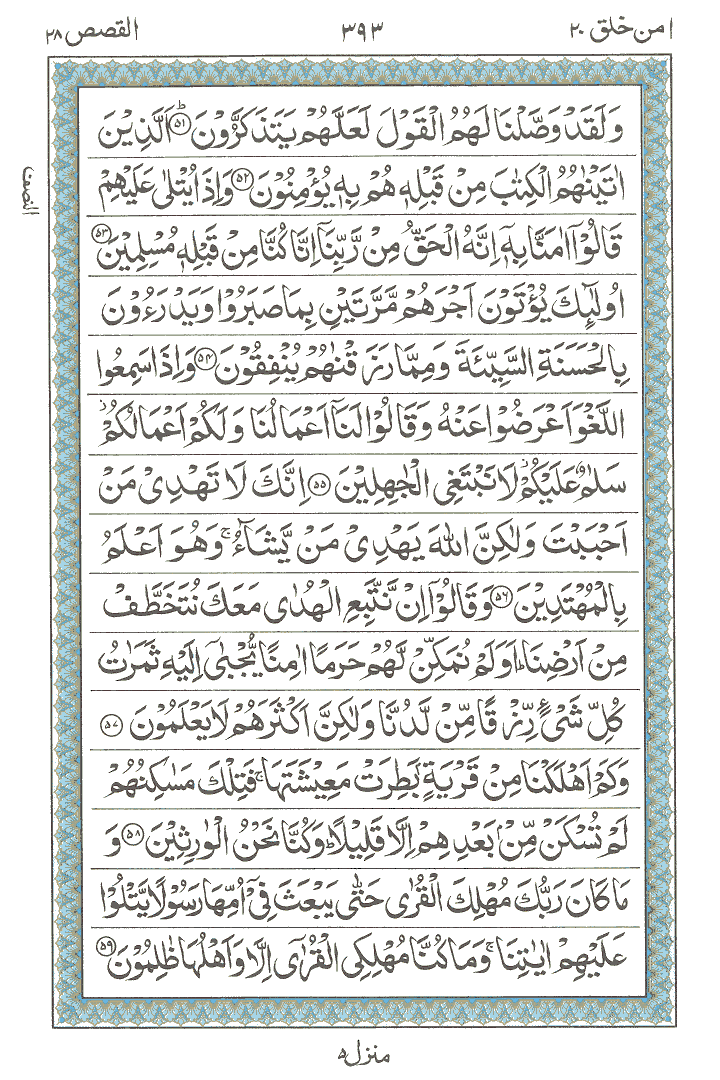 امن خلق ٢٠ ٣٩٣ القصص ٢٨
وَلَقَدْ وَصَّلْنَا لَهُمُ الْقَوْلَ لَعَلَّهُمْ يَتَذَكَّرُوْنَ ؕ﴿۵۱﴾ اَلَّذِيْنَ
اٰتَيْنٰهُمُ الْكِتٰبَ مِنْ قَبْلِهٖ هُمْ بِهٖ يُؤْمِنُوْنَ ﴿۵۲﴾ وَاِذَا يُتْلٰى عَلَيْهِمْ
قَالُوْۤا اٰمَنَّا بِهٖۤ اِنَّهُ الْحَقُّ مِنْ رَّبِّنَاۤ اِنَّا كُنَّا مِنْ قَبْلِهٖ مُسْلِمِيْنَ ﴿۵۳﴾
اُولٰٓئِكَ يُؤْتَوْنَ اَجْرَهُمْ مَّرَّتَيْنِ بِمَا صَبَرُوْا وَيَدْرَءُوْنَ
بِالْحَسَنَةِ السَّيِّئَةَ وَمِمَّا رَزَقْنٰهُمْ يُنْفِقُوْنَ ﴿۵۴﴾ وَاِذَا سَمِعُوا
اللَّغْوَ اَعْرَضُوْا عَنْهُ وَقَالُوْا لَنَاۤ اَعْمَالُنَا وَلَكُمْ اَعْمَالُكُمْ ؗ
سَلٰمٌ عَلَيْكُمْ ؗ لَا نَبْتَغِى الْجٰهِلِيْنَ ﴿۵۵﴾ اِنَّكَ لَا تَهْدِىْ مَنْ
اَحْبَبْتَ وَلٰكِنَّ اللّٰهَ يَهْدِىْ مَنْ يَّشَآءُ ۚ وَهُوَ اَعْلَمُ
بِالْمُهْتَدِيْنَ ﴿۵۶﴾ وَقَالُوْۤا اِنْ نَّتَّبِعِ الْهُدٰى مَعَكَ نُتَخَطَّفْ
مِنْ اَرْضِنَا ؕ اَوَلَمْ نُمَكِّنْ لَّهُمْ حَرَمًا اٰمِنًا يُّجْبٰٓى اِلَيْهِ ثَمَرٰتُ
كُلِّ شَىْءٍ رِّزْقًا مِّنْ لَّدُنَّا وَلٰكِنَّ اَكْثَرَهُمْ لَا يَعْلَمُوْنَ ﴿۵۷﴾
وَكَمْ اَهْلَكْنَا مِنْ قَرْيَةٍۭ بَطِرَتْ مَعِيْشَتَهَا ۚ فَتِلْكَ مَسٰكِنُهُمْ
لَمْ تُسْكَنْ مِّنْۢ بَعْدِهِمْ اِلَّا قَلِيْلًا ؕ وَكُنَّا نَحْنُ الْوٰرِثِيْنَ ﴿۵۸﴾ وَ
مَا كَانَ رَبُّكَ مُهْلِكَ الْقُرٰى حَتّٰى يَبْعَثَ فِىْۤ اُمِّهَا رَسُوْلًا يَّتْلُوْا
عَلَيْهِمْ اٰيٰتِنَا ۚ وَمَا كُنَّا مُهْلِكِى الْقُرٰٓى اِلَّا وَاَهْلُهَا ظٰلِمُوْنَ ﴿۵۹﴾
النصف
منزل ۵